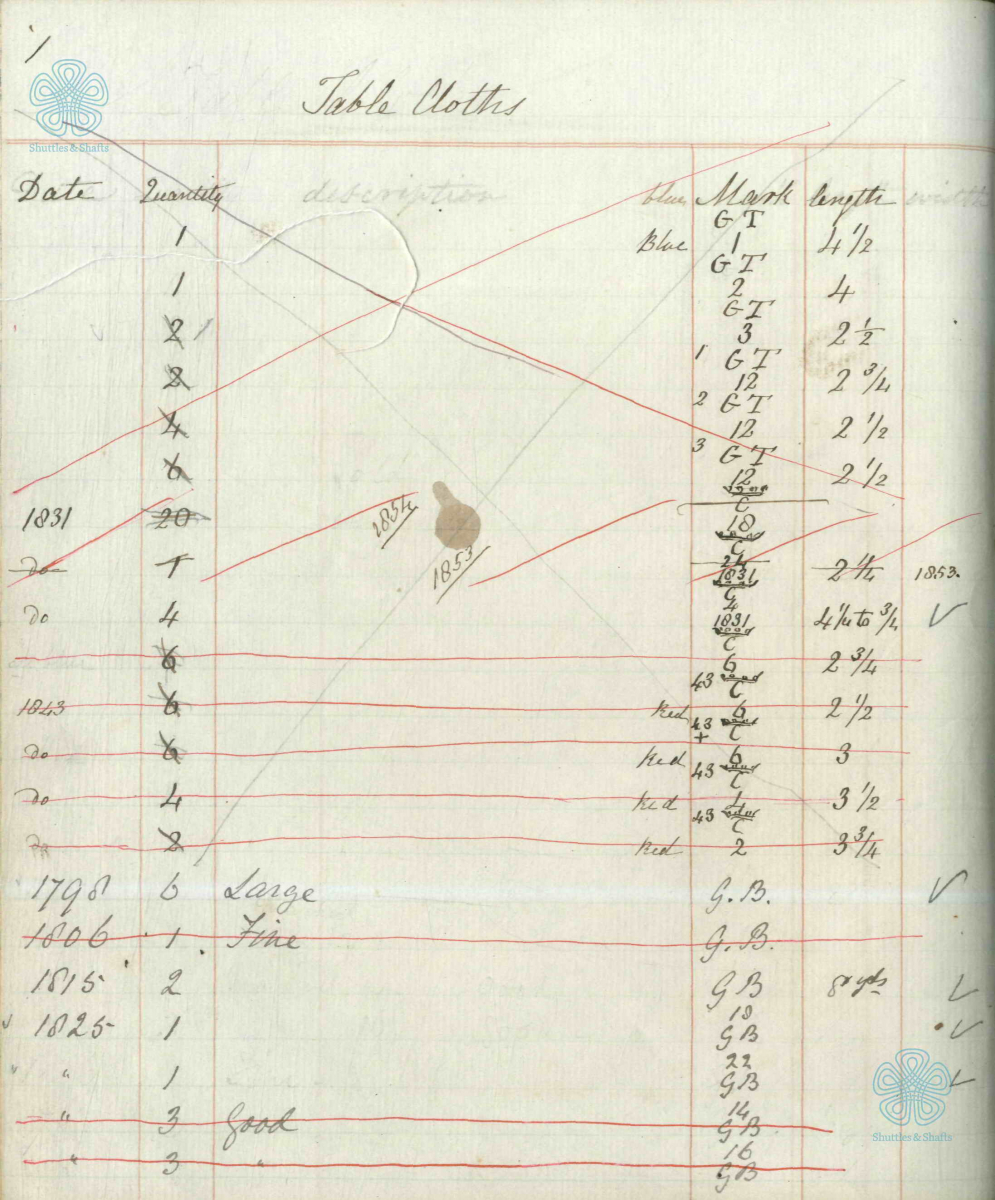 1
Shuttles & Shafts
Table Cloths
Date Quantity description blue Mark length width
GT
1 Blue 1 4 1/2
GT
1 2 4
GT
2 1 3 2 1/2
1 GT
2 12 2 3/4
2 GT
4 12 2 1/2
3 GT
6 12 2 1/2
C
1831 20 1854 18
C
24
do 1 1853 1831 2 1/4 1853.
C
4
do 4 1831 4 1/4 to 3/4
C
6 6 2 3/4
43 C
1843 6 Red 6 2 1/2
43 C
+
do 6 Red 6 3
43 C
do 4 Red 4 3 1/2
43 C
do 2 Red 2 3 3/4
1798 6 Large G. B.
1806 1 Fine G. B.
1815 2 G B 8 yds
18
1825 1 G B
22
" 1 G B
14
" 3 Good G B
16
" 3 " G B
Shuttles & Shafts